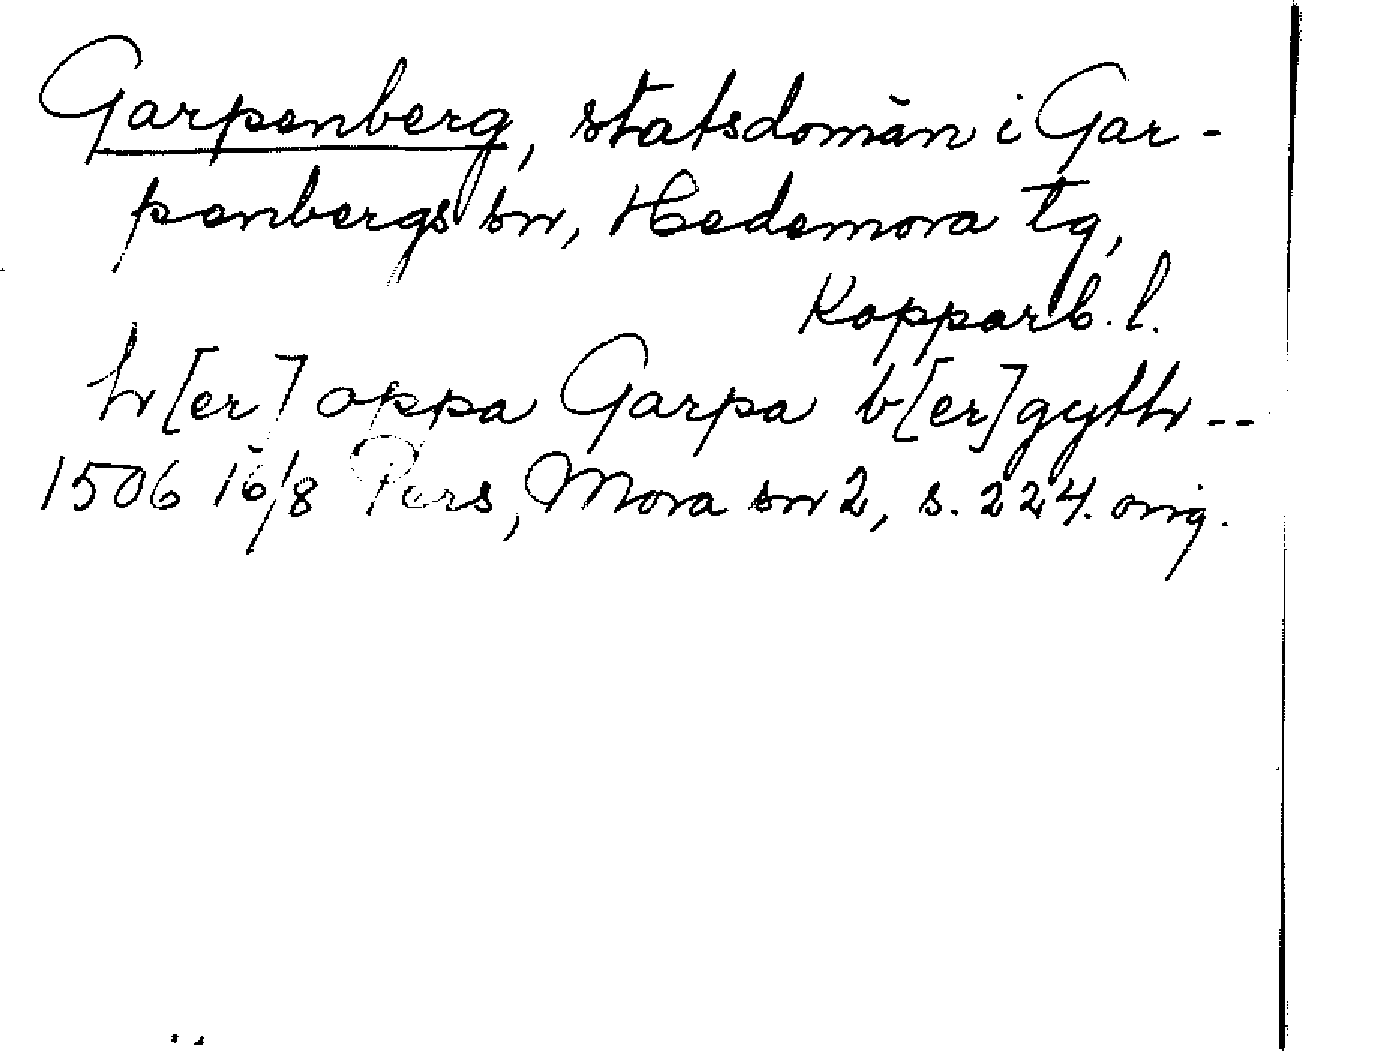 Garpenberg, statsdomän i Gar-
penbergs sn, Hedemora tg,
Kopparb. l.
h[er] oppa Garpa b[er]gyth --
1506 16/8 Pers, Mora sn 2, s. 224. orig.